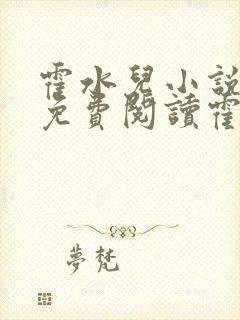 霍水兒小說
免費閱讀霍
夢梵